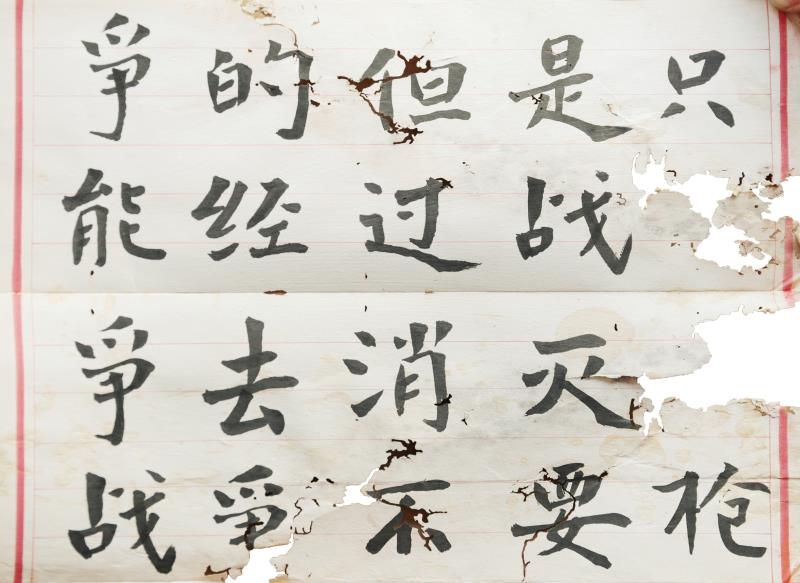 爭的但是只
能经过战
爭去消灭
战爭不要枪